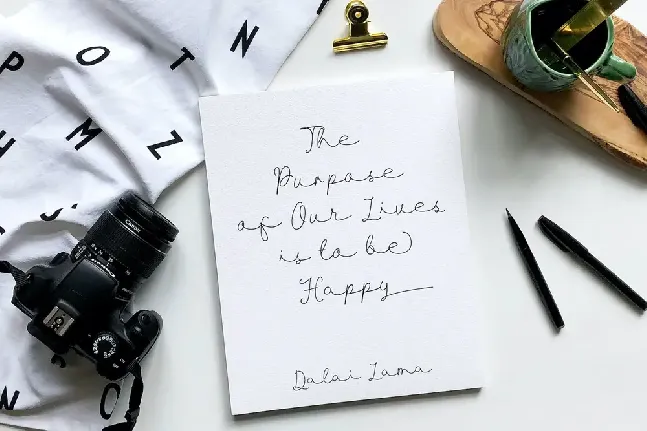 P O T N
H M Z
N O
Canon
The
Purpose
of Our Lives
is to be
Happy
Dalai Lama